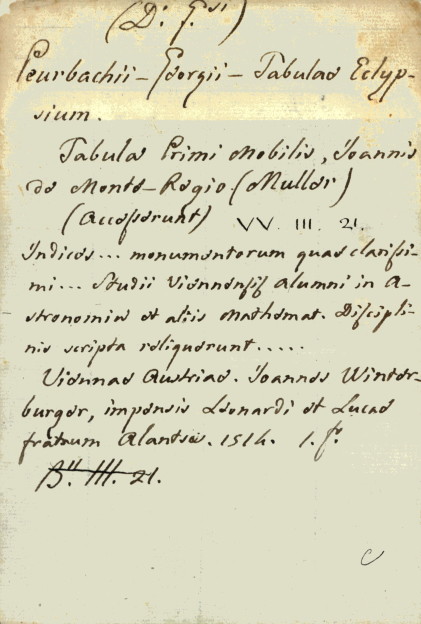 (D. f.si)
Peurbachii - Georgii - Tabulae Eclyp-
sium.
Tabula Primi Mobilis, Joannis
de Monte-Regio (Muller)
(Accesserunt) VV. III. 21.
Indices... monumentorum quae clarissi-
mi... Studii Viennensis alumni in A-
stronomia et aliis Mathemat. Discipli-
nis scripta reliquerunt.....
Viennae Austriae. Joannes Winter-
burger, impensis Leonardi et Lucae
fratrum Alantsee. 1514. 1. f.
III. 21.